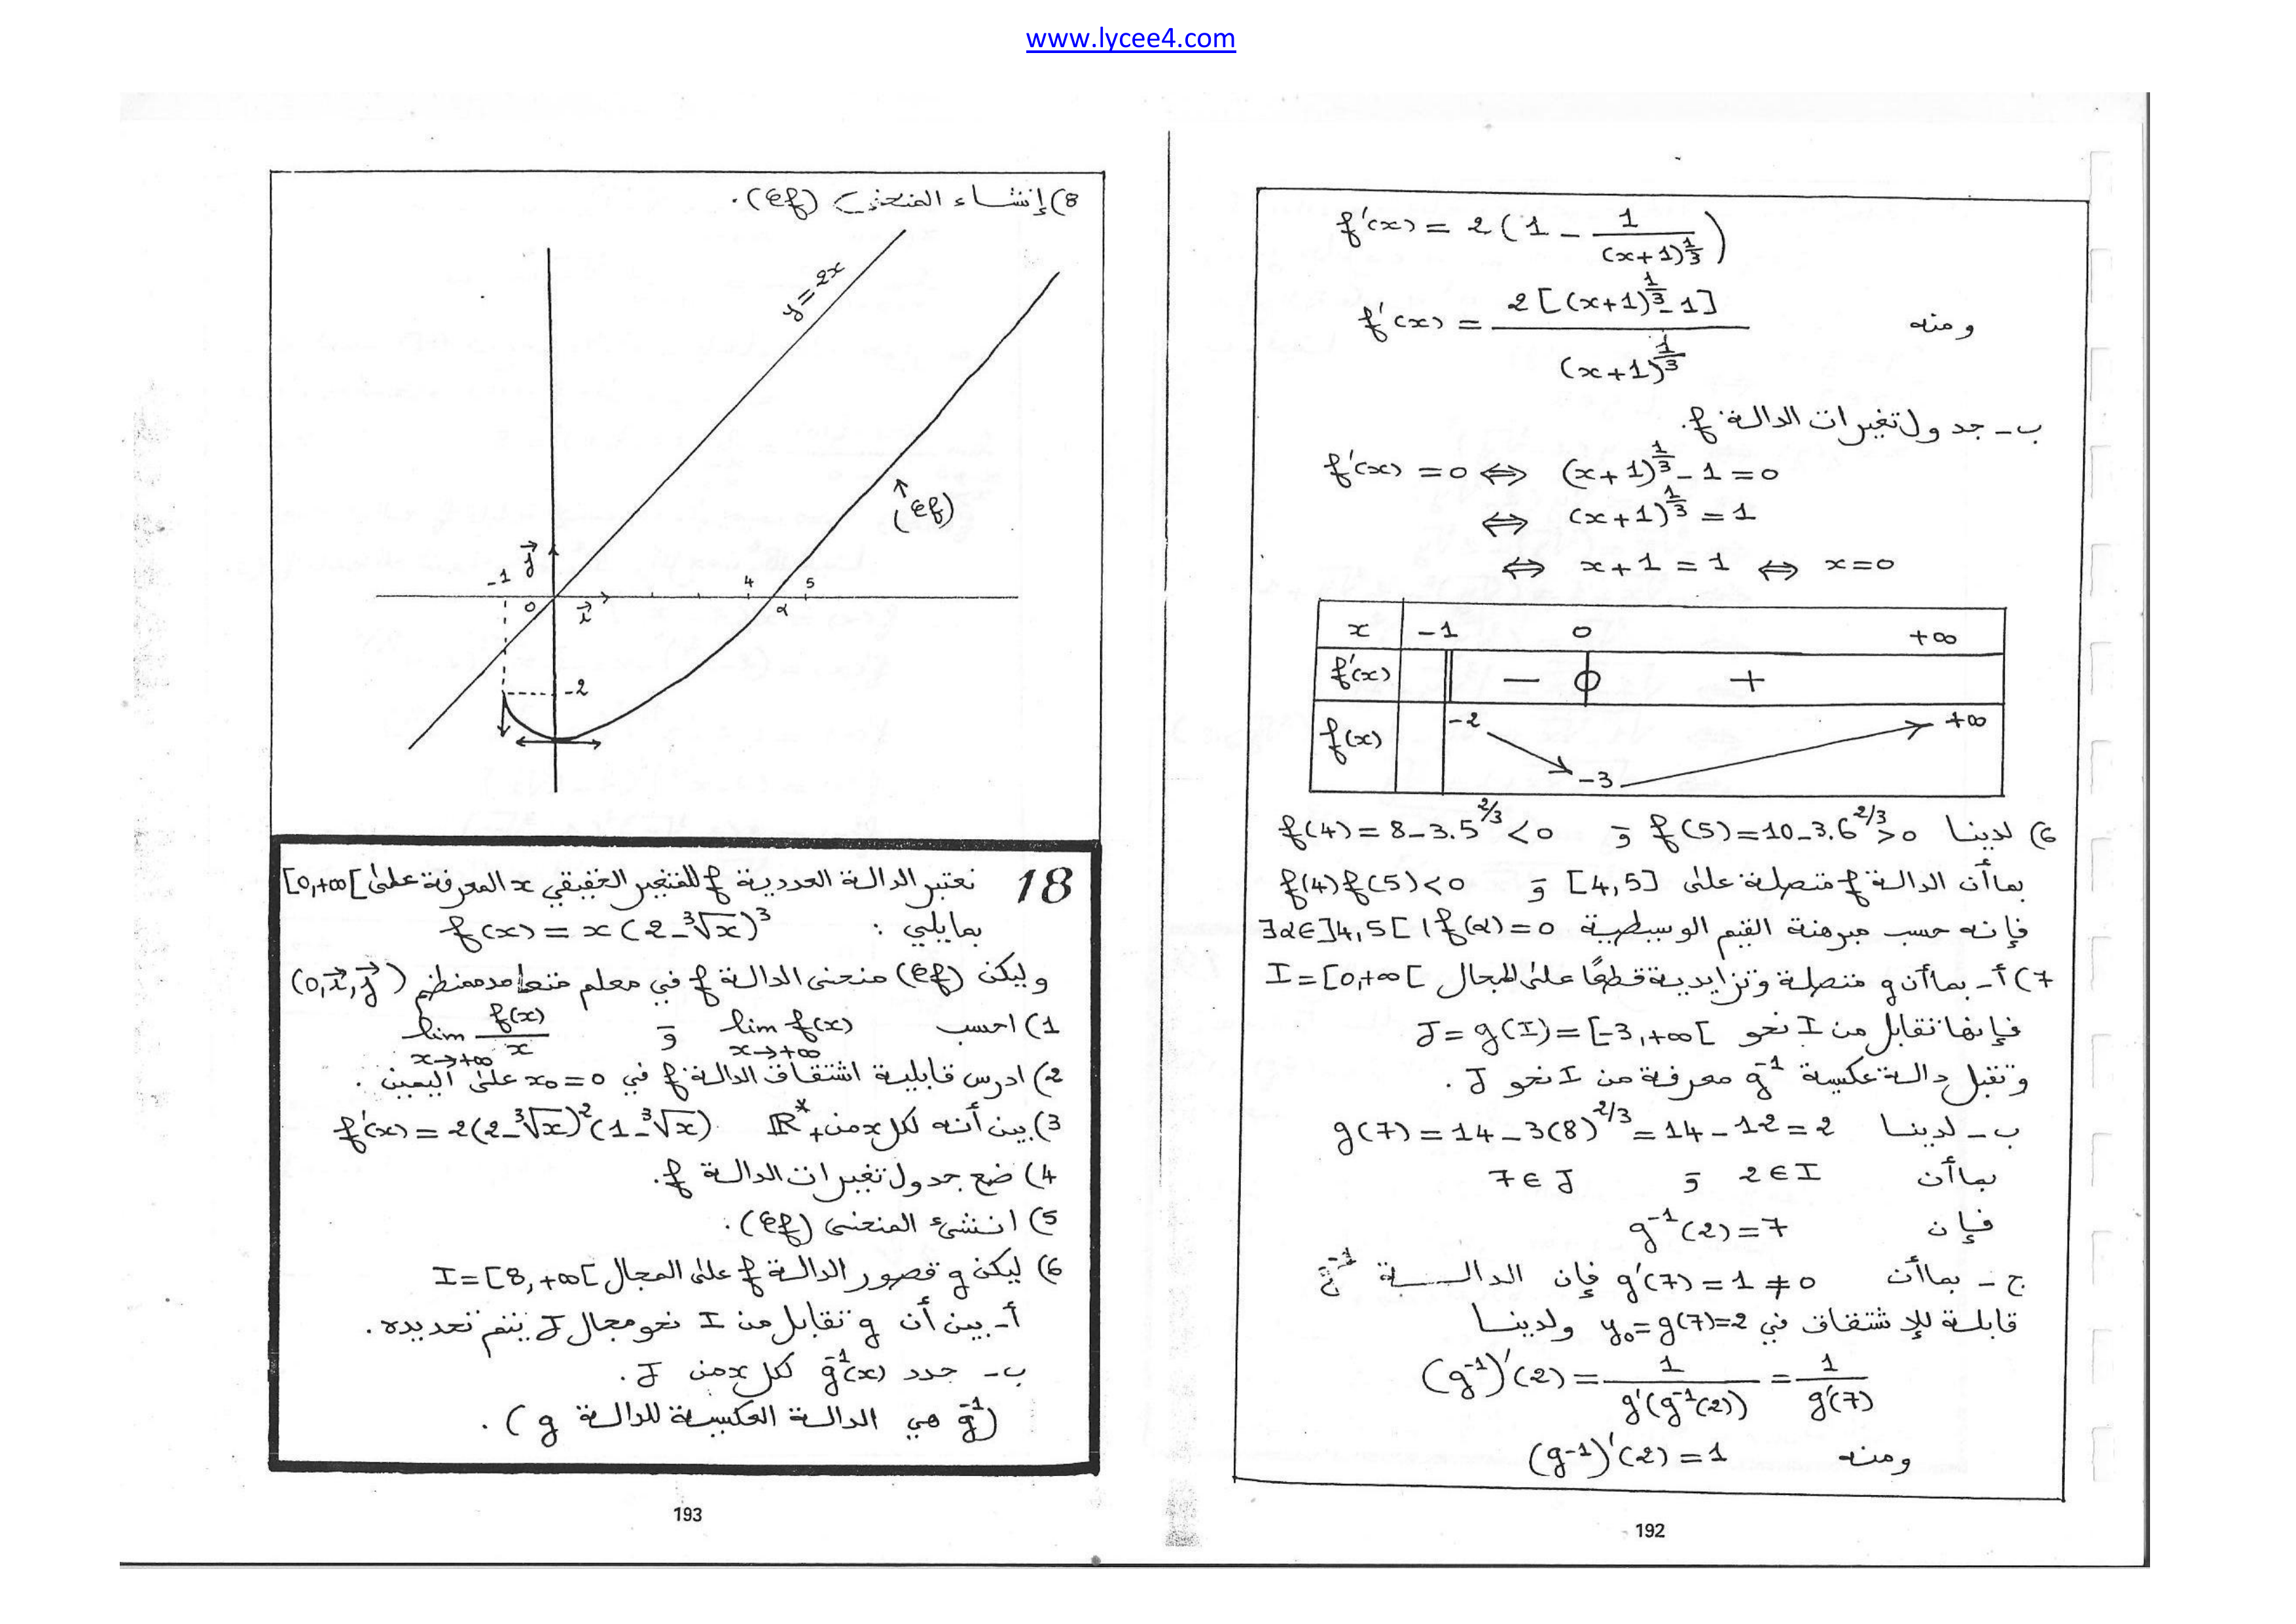 www.lycee4.com
f'(x) = 2(1 - 1/(x+1)^{1/3})
ومنه f'(x) = 2[(x+1)^{1/3} - 1]/(x+1)^{1/3}
ب - جدول تغيرات الدالة f.
f'(x) = 0 ⇔ (x+1)^{1/3} - 1 = 0
⇔ (x+1)^{1/3} = 1
⇔ x+1 = 1 ⇔ x=0
x -1 0 +∞
f'(x) - 0 +
f(x) -2 -3 +∞
6) لدينا f(5)=10-3.6^{2/3}>0 و f(4)=8-3.5^{2/3}<0
بما أن الدالة f متصلة على [4,5] و f(4)f(5)<0
فإنه حسب مبرهنة القيم الوسيطية ∃α∈]4,5[ | f(α)=0
7) أ- بما أن g متصلة وتزايدية قطعًا على المجال I=[0,+∞[
فإنها تقابل من I نحو J=g(I)=[-3,+∞[
وتقبل دالة عكسية g^{-1} معرفة من I نحو J.
ب - لدينا g(7)=14-3(8)^{2/3}=14-12=2
بما أن 2∈I و 7∈J
فإن g^{-1}(2)=7
ج - بما أن g'(7)=1≠0 فإن الدالة g^{-1}
قابلة للإشتقاق في y₀=g(7)=2 ولدينا
(g^{-1})'(2) = 1/g'(g^{-1}(2)) = 1/g'(7)
ومنه (g-1)'(2)=1
192
8) إنشاء المنحنى (Cf).
y=2x
(Cf)
j
-1 0 i 4 α 5
-2
18 نعتبر الدالة العددية f للمتغير الحقيقي x المعرفة على [0,+∞[
بمايلي : f(x) = x(2-∛x)³
وليكن (Cf) منحنى الدالة f في معلم متعامد ممنظم (0,i,j)
1) احسب lim_{x→+∞} f(x) و lim_{x→+∞} f(x)/x
2) ادرس قابلية اشتقاق الدالة f في x₀=0 على اليمين.
3) بين أنه لكل x من ℝ*₊ f'(x) = 2(2-∛x)²(1-∛x)
4) ضع جدول تغيرات الدالة f.
5) انشئ المنحنى (Cf).
6) ليكن g قصور الدالة f على المجال I=[8,+∞[
أ- بين أن g تقابل من I نحو مجال J يتم تحديده.
ب- حدد g^{-1}(x) لكل x من J.
(g^{-1} هي الدالة العكسية للدالة g).
193